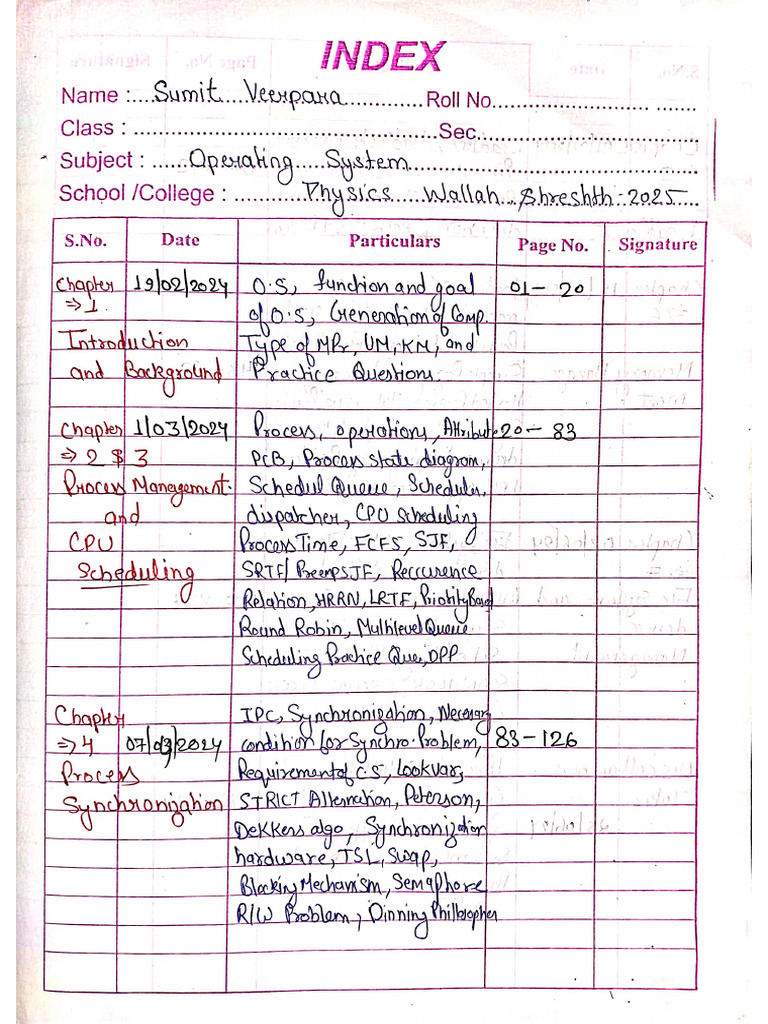 INDEX
Name :....Sumit....Veerpara..............Roll No......................... .......
Class : ............................................Sec................................
Subject : ......Operating.....System..........................................
School /College : ............Physics....Wallah...Shreshth-2025....
S.No. Date Particulars Page No. Signature
Chapter 19/02/2024 O.S, function and goal 01 - 20
⇒ 1. of O.S, Generation of Comp.
Introduction Type of MPr, UM, KM, and
and Background Practice Questions.
Chapter 1/03/2024 Process, operations, Attribute 20 - 83
⇒ 2 $ 3 PCB, Process state diagram,
Process Management. Schedul Queue, Scheduler,
and dispatcher, CPU Scheduling
CPU Process Time, FCFS, SJF,
Scheduling SRTF/ PreempSJF, Reccurence
Relation, HRRN, LRTF, Priority Based
Round Robin, Multilevel Queue
Scheduling Practice Que, DPP
Chapter IPC, Synchronization, Necessary
⇒ 4 07/03/2024 condition for Synchro. Problem, 83 - 126
Process Requirement of C.S, Lock Var,
Synchronization STRICT Alternation, Peterson,
Dekkers algo, Synchronization
hardware, TSL, Swap,
Blocking Mechanism, Semaphore
R/W Problem, Dinning Philosopher